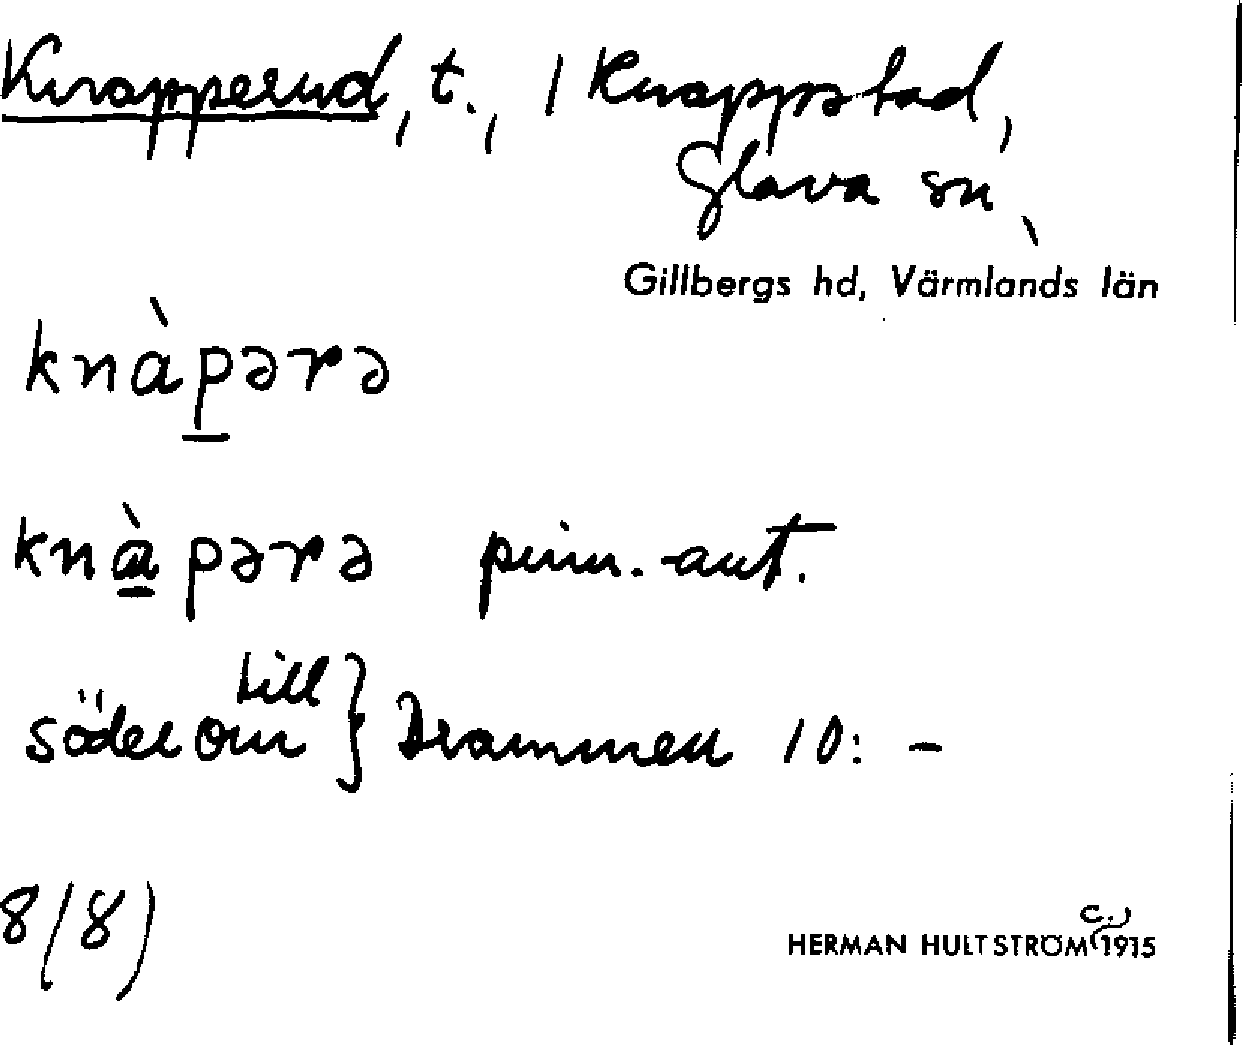 Knapperud, t., / Knappstad,
Glava sn,
Gillbergs hd, Värmlands län
knàpərə
knàpərə prim.-ant.
söder om } Drammen 10: –
till
8/8)
c.)
HERMAN HULTSTRÖM 1915